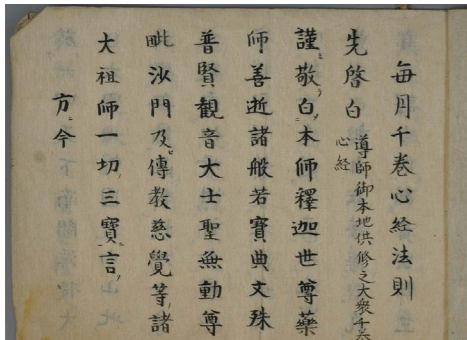 毎月千巻心経法則
先啓白 導師御本地供修之大衆千巻
心経
謹敬白本師釋迦世尊藥
師善逝諸般若寳典文殊
普賢観音大士聖無動尊
毗沙門及傳教慈覺等諸
大祖師一切三寳言
方今